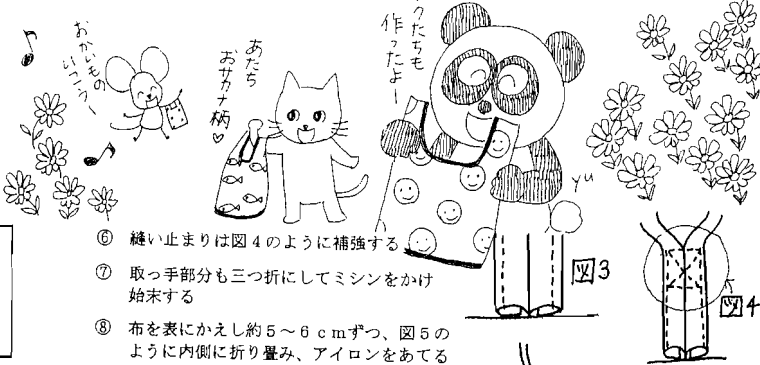 おかいもの
いこうー
あたち
おサカナ柄♡
クたちも
作ったよー
yu
⑥ 縫い止まりは図4のように補強する
⑦ 取っ手部分も三つ折にしてミシンをかけ
始末する
⑧ 布を表にかえし約5～6cmずつ、図5の
ように内側に折り畳み、アイロンをあてる
図3
図4